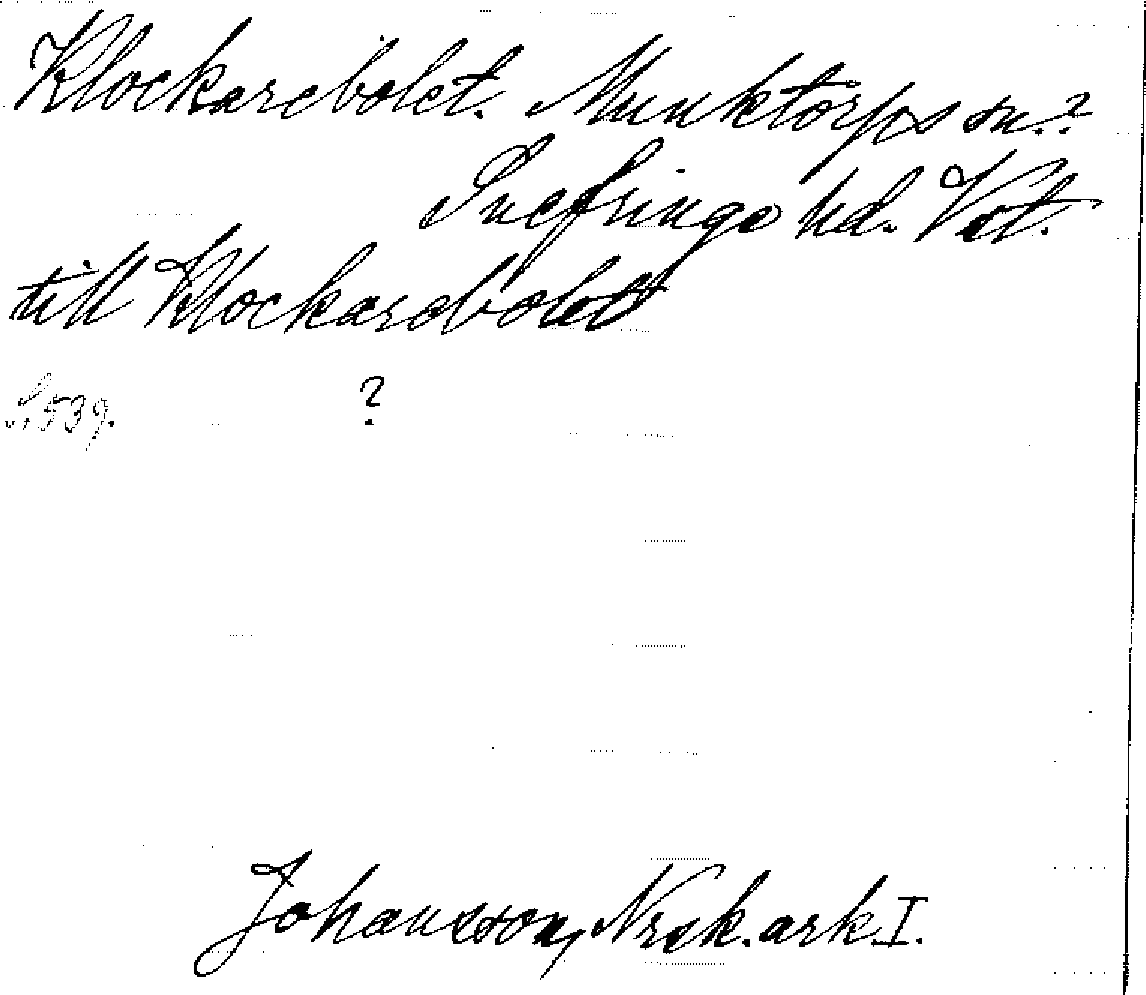 Klockarebolet. Munktorps sn.?
Snefringe hd. Vst.
till Klockarebolett
S. 539. ?
Johansson, Nrsk. ark. I.